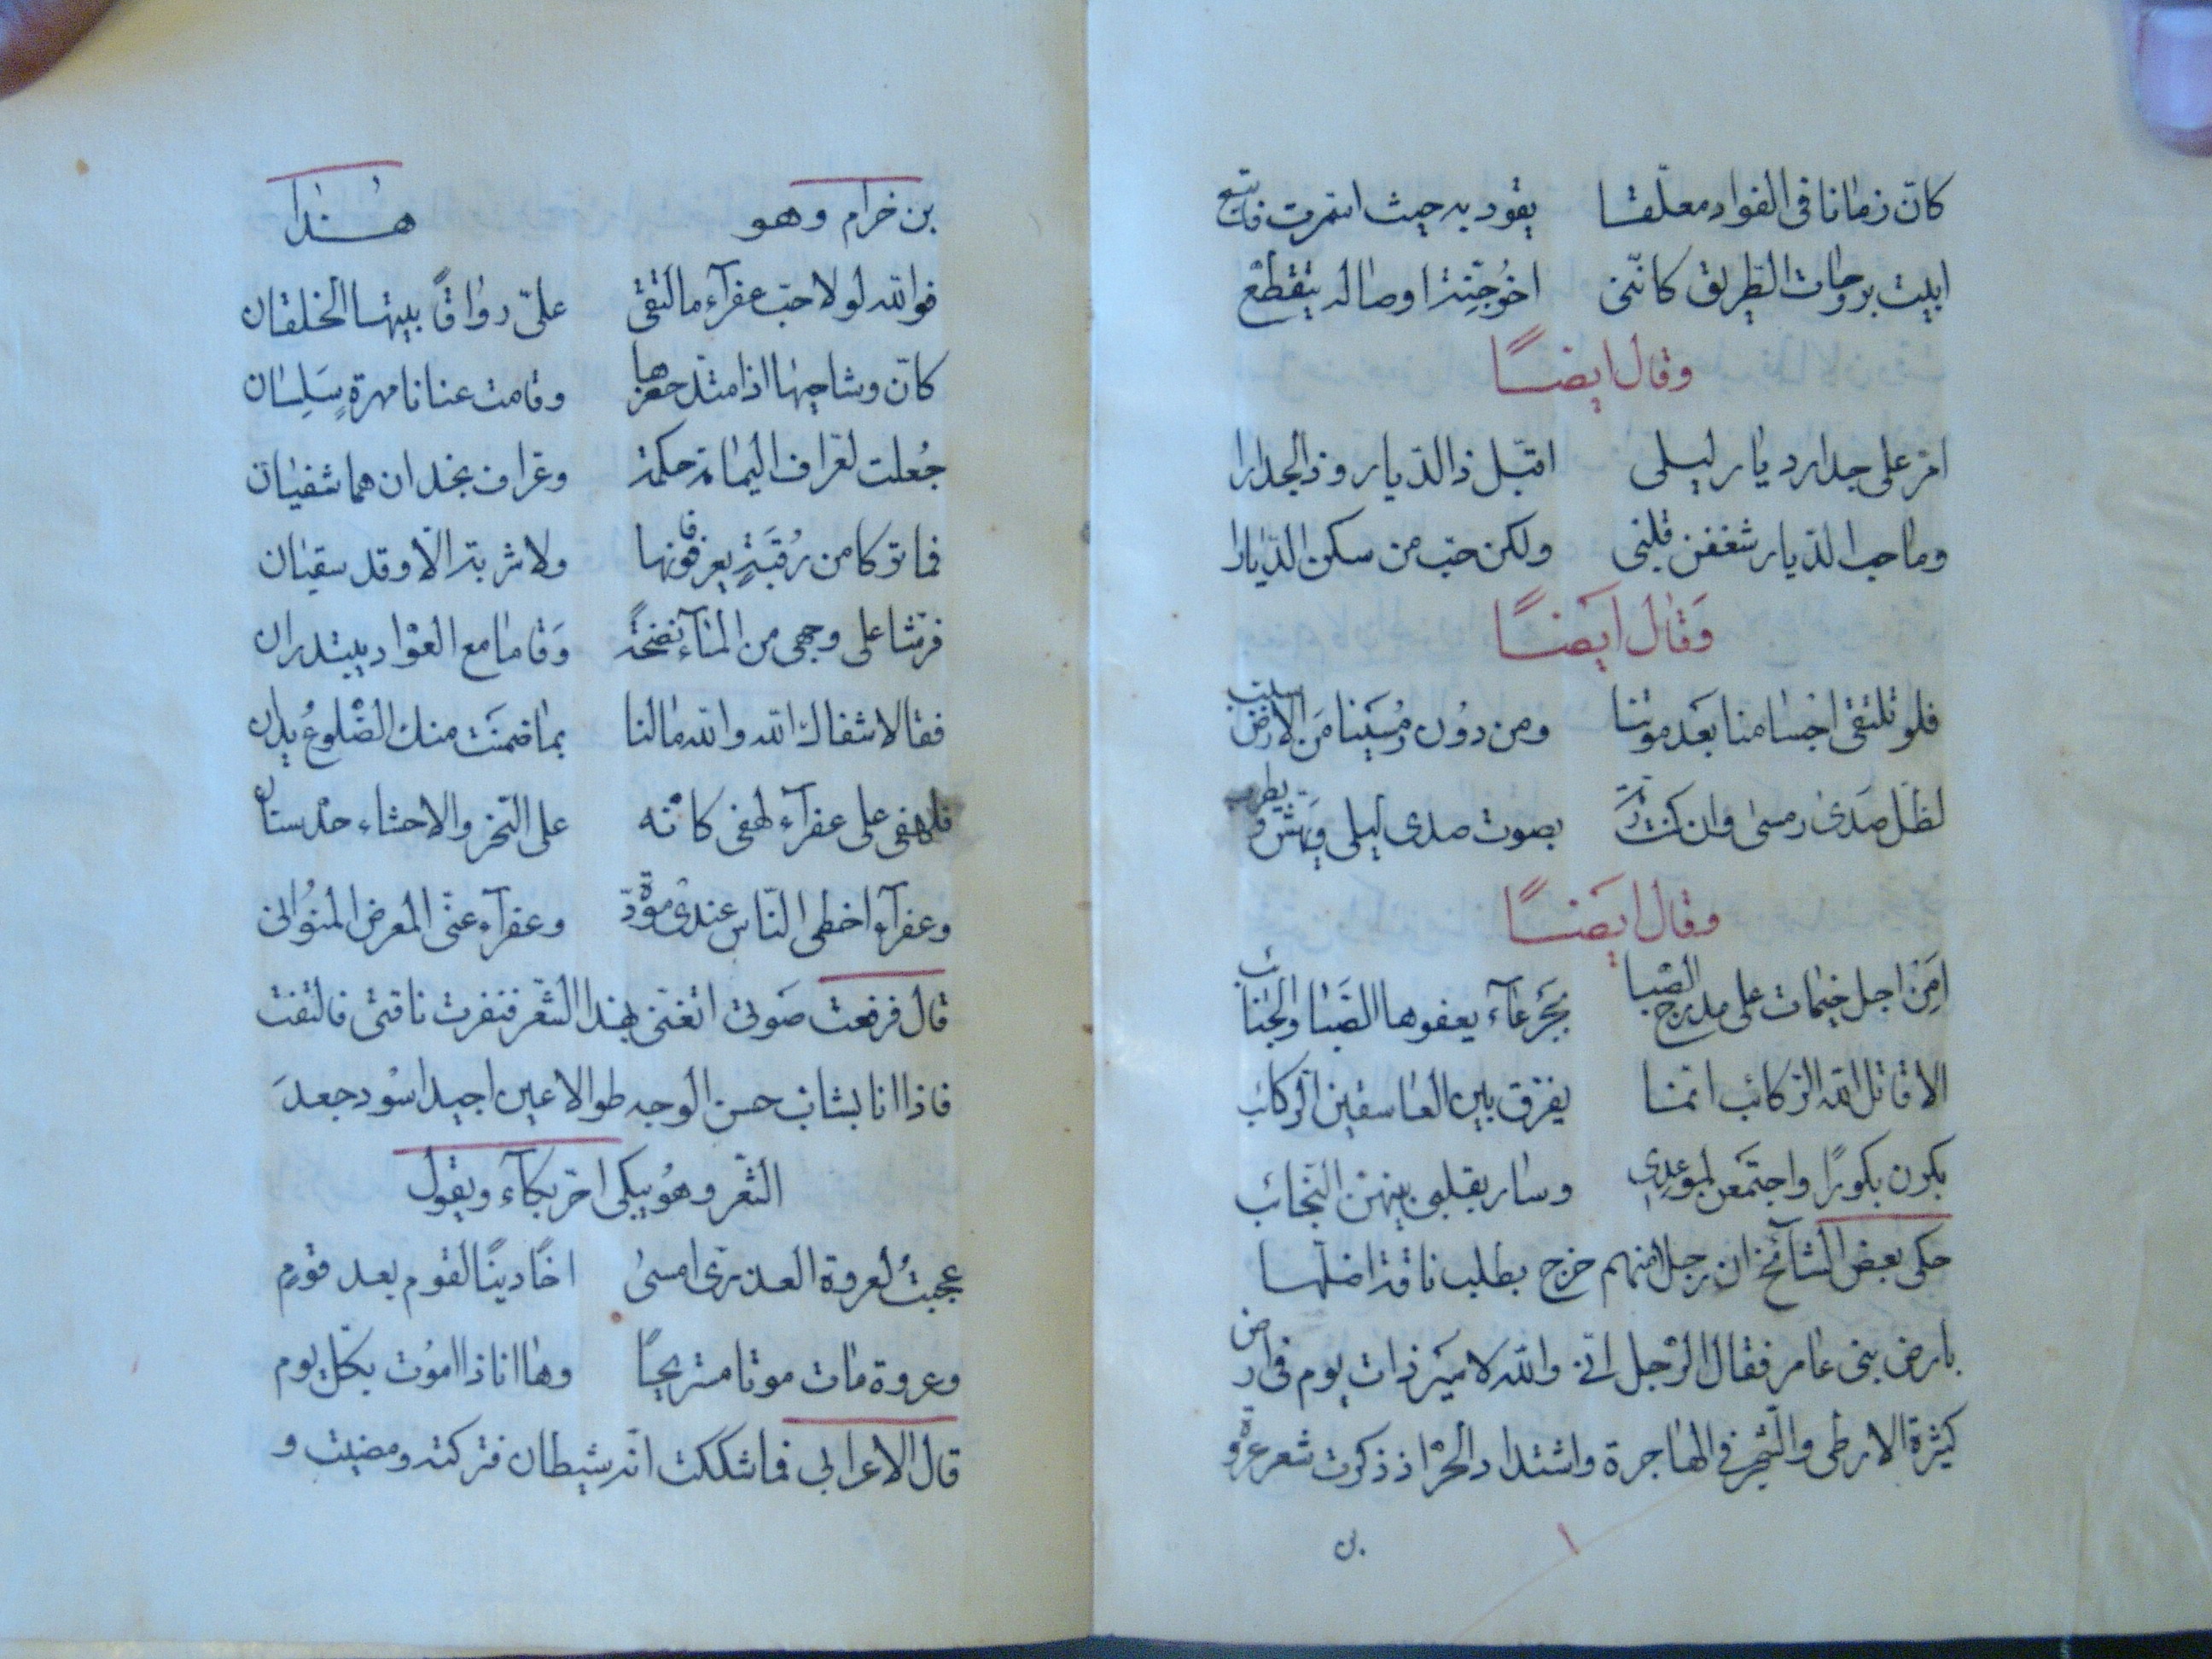 كانّ زمانا فى الفواد معلّقا يقود به حيث استمرت فاتبع
ابيت بروحات الطريق كانّنى اخو جنّة اوصاله يتقطع
وقال ايضًا
امرّ على جدار ديار ليلى اقبّل ذا الديار وذا الجدارا
وما حب الديار شغفن قلبى ولكن حبّ من سكن الديارا
وقال ايضًا
فلو تلتقى اجسامنا بعد موتنا ومن دون رمسينا من الارض
لظلّ صدى رمسى وان كنت رمّة بصوت صدى ليلى يهشّ و يطرب
وقال ايضًا
امن اجل خيمات على مدرج الصّبا بجرعآء يعفوها الصّبا والجنائب
الا قاتل الله الركائب انّما يفرّق بين العاسفين الركائب
بكرن بكورًا واجتمعن لموعدى وسار بقلبى بينهنّ النجائب
حكى بعض المشآئخ ان رجلا منهم خرج بطلب ناقة اضلّها
بارض بنى عامر فقال الرّجل انى والله لاسير ذات يوم فى ارض
كثيرة الارطى والشجر فى الهاجرة واشتداد الحرّ اذ ذكرت شعر عروة
بن
بن خرام وهو هذا
فوالله لولا حبّ عفرآء ما التقى علىّ رواقًا بيتها الخلقان
كانّ وشاحيها اذا متد خصرها وقامت عنانا مهرة سَلِسان
جُعلت لعرّاف اليمامة حكمة وعراف نجد ان هما شفيان
فما توكا من رُقيَةٍ يعرفونها ولا شربة الّا وقد سقيان
فرشّا على وجهى من المآء نضحةً وقاما مع العوّاد يبتدران
فقالا شفاك الله والله ما لنا بما ضمنت منك الضّلوعُ يدان
فلهفى على عفرآء لهفى كانّه على النّحر والاحشاء حدّ سنان
وعفرآء احظى النّاس عندى مودّة وعفرآء عنّى المعرض المتوانى
قال فرفعت صوتى اتغنى بهذا الشعر فنفرت ناقتى فالتفت
فاذا انا بشاب حسن الوجه طوالا عين اجيد اسود جعد
الشعر وهو يبكى احرّ بكآء ويقول
عجبتُ لعروة العذرى امسى احًاديثًا لقوم بعد قوم
وعروة مات موتا مستريحًا وها انا ذا اموت بكلّ يوم
قال الاعرابى فما شككت انّه شيطان فتركته ومضيت و